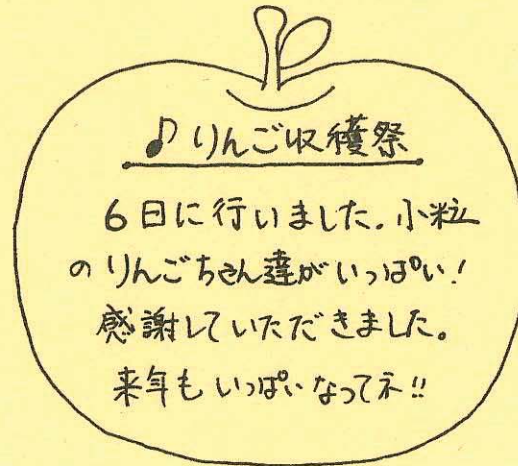 ♪りんご収穫祭
6日に行いました。小粒
のりんごちさん達がいっぱい!
感謝していただきました。
来年もいっぱいなってネ!!